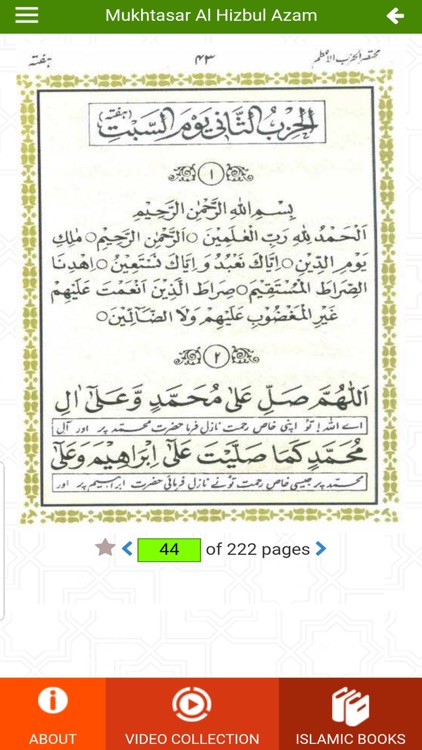 Mukhtasar Al Hizbul Azam
مختصر الحزب الاعظم ۴۳ ہفتہ
الحزب الثانی یوم السبت (ہفتہ)
۱
بِسْمِ اللهِ الرَّحْمٰنِ الرَّحِيْمِ
اَلْحَمْدُ لِلّٰهِ رَبِّ الْعٰلَمِيْنَ ○ الرَّحْمٰنِ الرَّحِيْمِ ○ مٰلِكِ
يَوْمِ الدِّيْنِ ○ اِيَّاكَ نَعْبُدُ وَ اِيَّاكَ نَسْتَعِيْنُ ○ اِهْدِنَا
الصِّرَاطَ الْمُسْتَقِيْمَ ○ صِرَاطَ الَّذِيْنَ اَنْعَمْتَ عَلَيْهِمْ
غَيْرِ الْمَغْضُوْبِ عَلَيْهِمْ وَلَا الضَّآلِّيْنَ ○
۲
اَللّٰهُمَّ صَلِّ عَلٰى مُحَمَّدٍ وَّعَلٰٓى اٰلِ
اے اللہ! تو اپنی خاص رحمت نازل فرما حضرت محمد پر اور آل
مُحَمَّدٍ كَمَا صَلَّيْتَ عَلٰٓى اِبْرَاهِيْمَ وَعَلٰٓى
محمد پر جیسی خاص رحمت تو نے نازل فرمائی حضرت ابراہیم پر اور
44 of 222 pages
ABOUT
VIDEO COLLECTION
ISLAMIC BOOKS